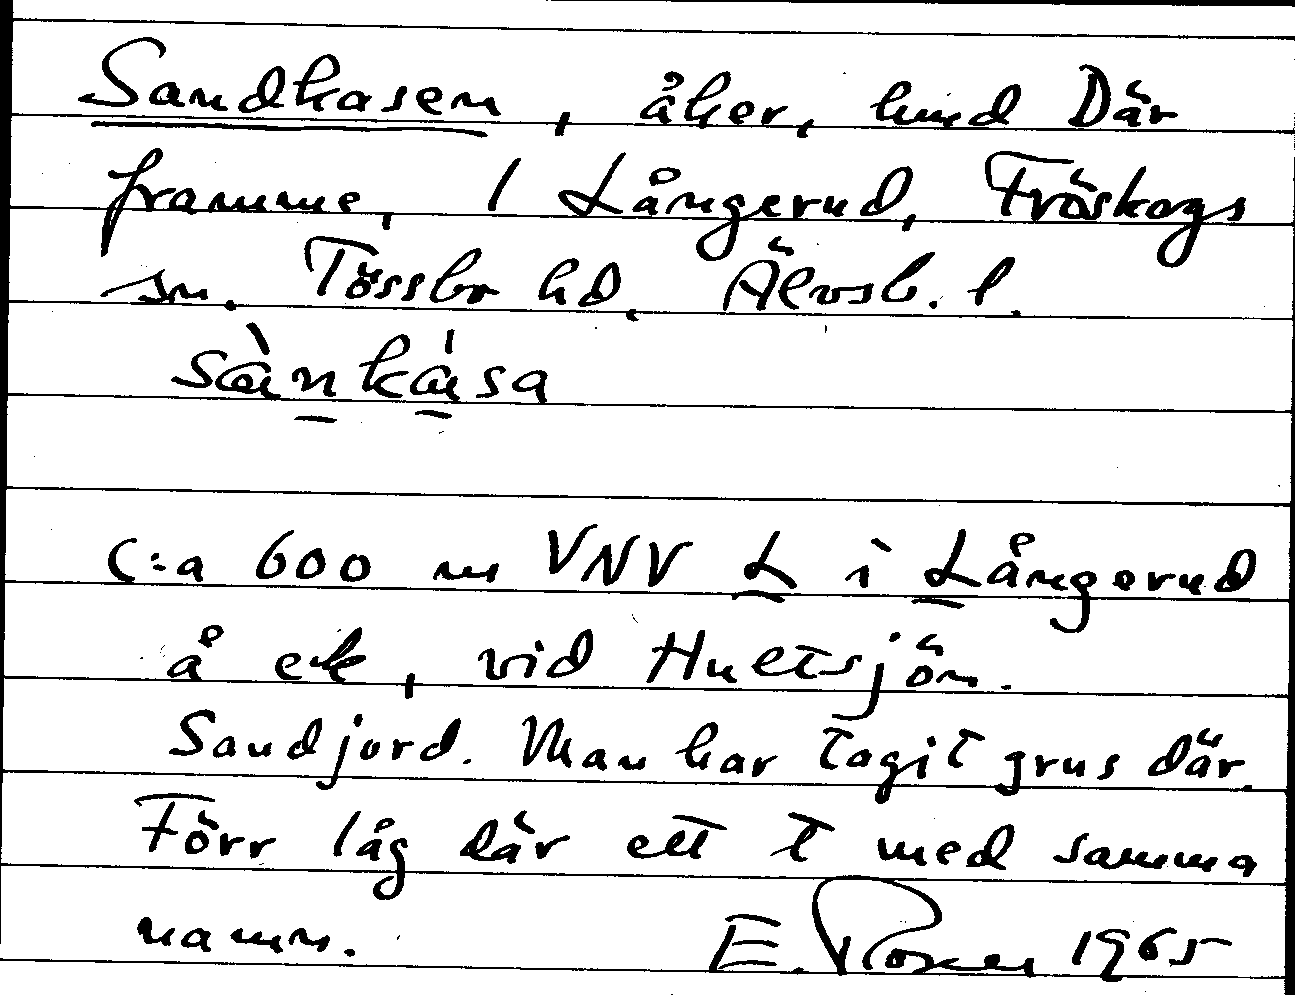 Sandkasen, åker, hmd Där
framme, 1 Långerud, Fröskogs
sn. Tössbo hd. Älvsb. l.
sànkása
C:a 600 m VNV L i Långerud
å ek, vid Hultsjön.
Sandjord. Man har tagit grus där.
Förr låg där ett t med samma
namn. E. 1965